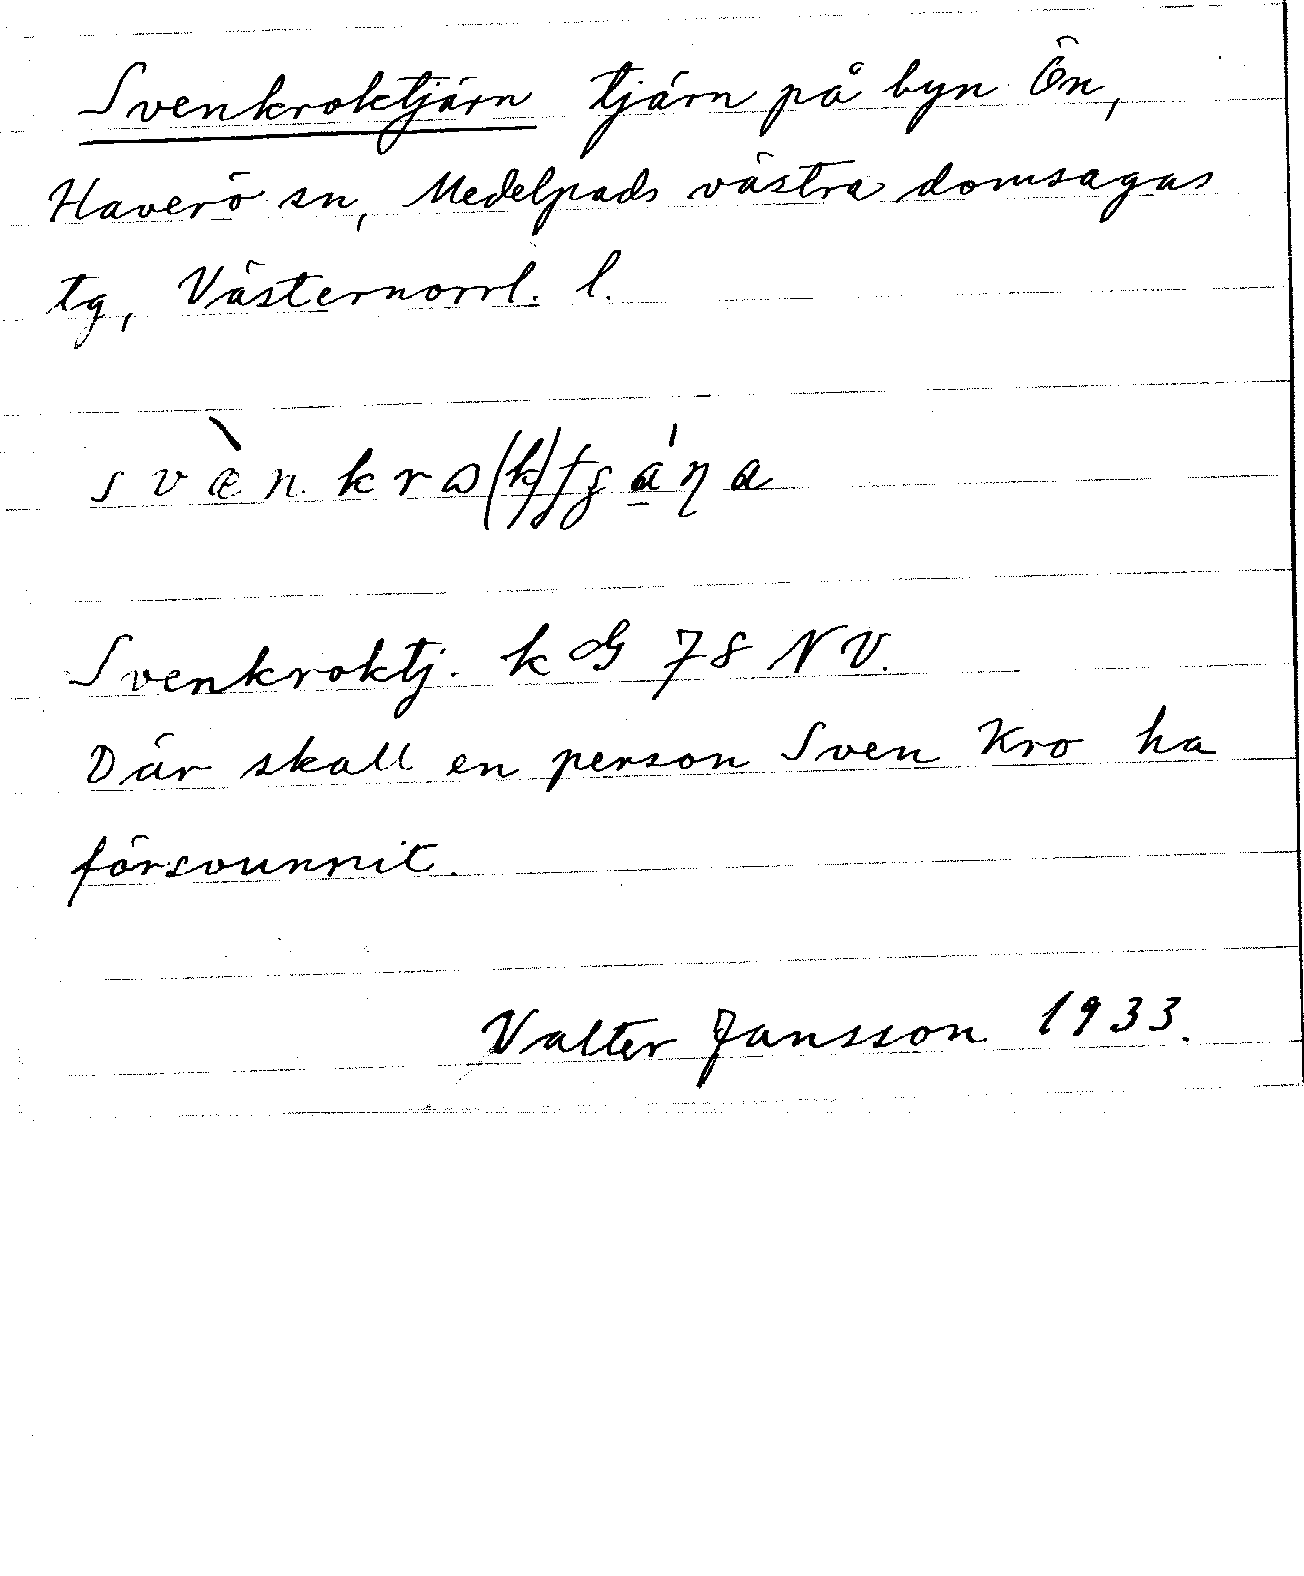 Svenkroktjärn tjärn på byn Ön,
Haverö sn, Medelpads västra domsagas
tg, Västernorrl. l.
Svenkroktj. k G 78 NV.
Där skall en person Sven Kro ha
försvunnit.
Valter Jansson 1933.